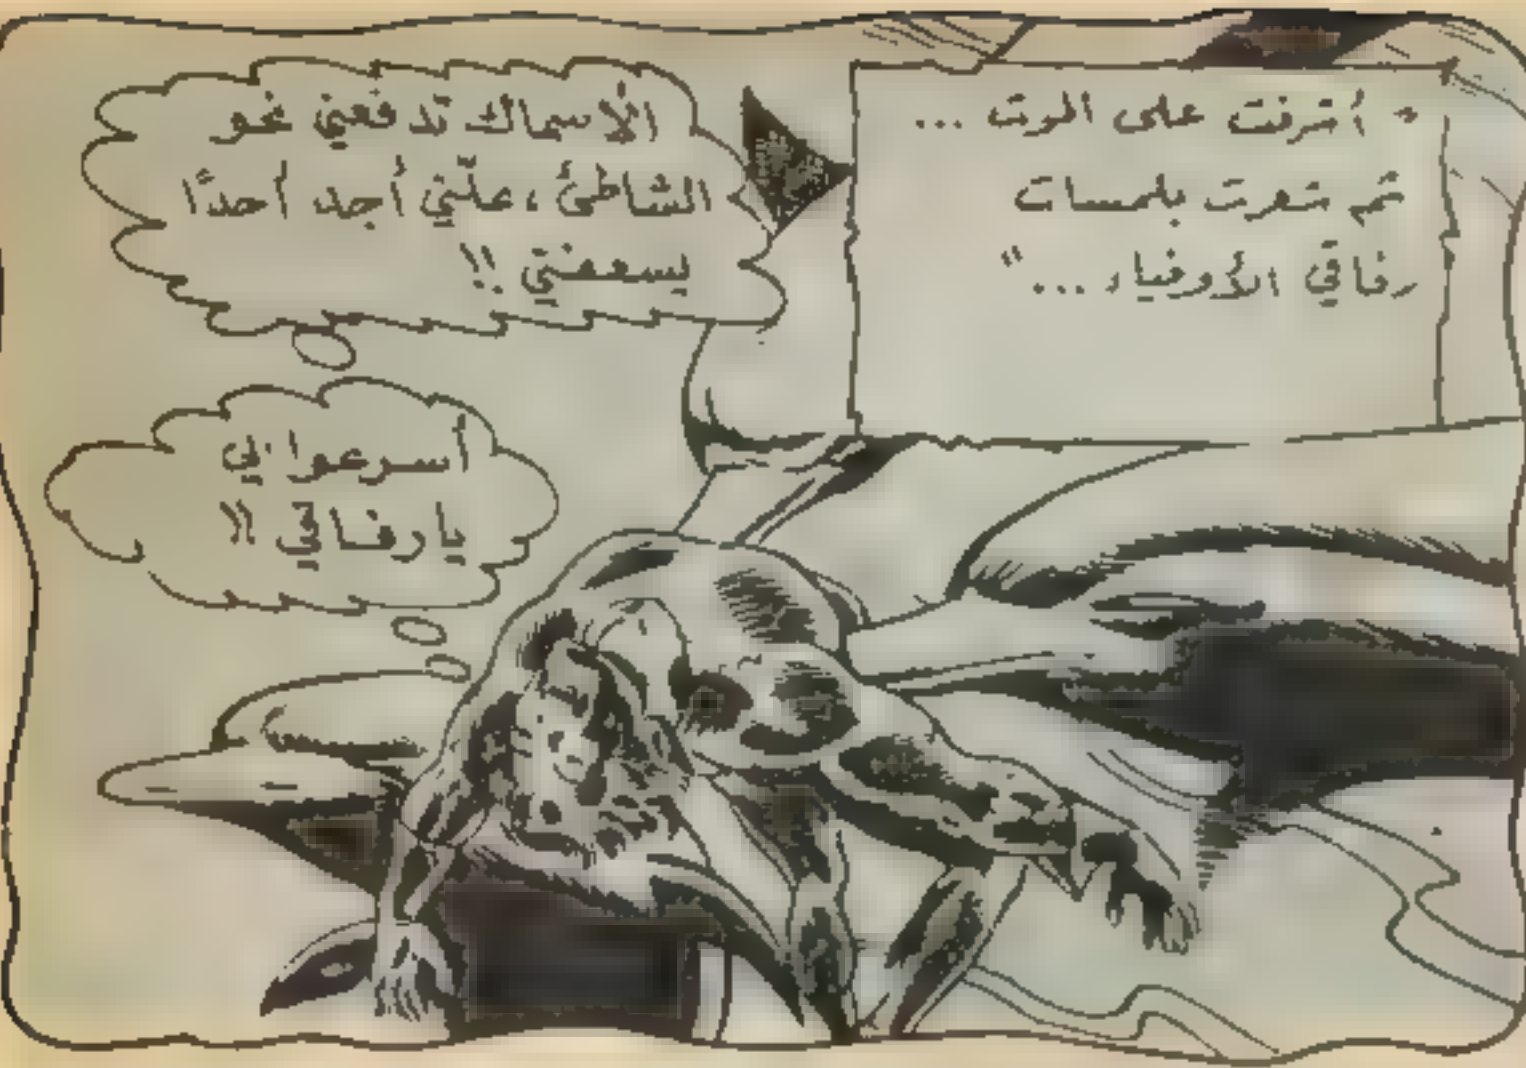 " أشرفت على الموت ...
ثم شعرت بلمسات
رفاقي الأوفياء ... "
الأسماك تدفعني نحو
الشاطئ ، علّني أجد أحدًا
يسعفني !!
أسرعوا بي
يا رفاقي !!